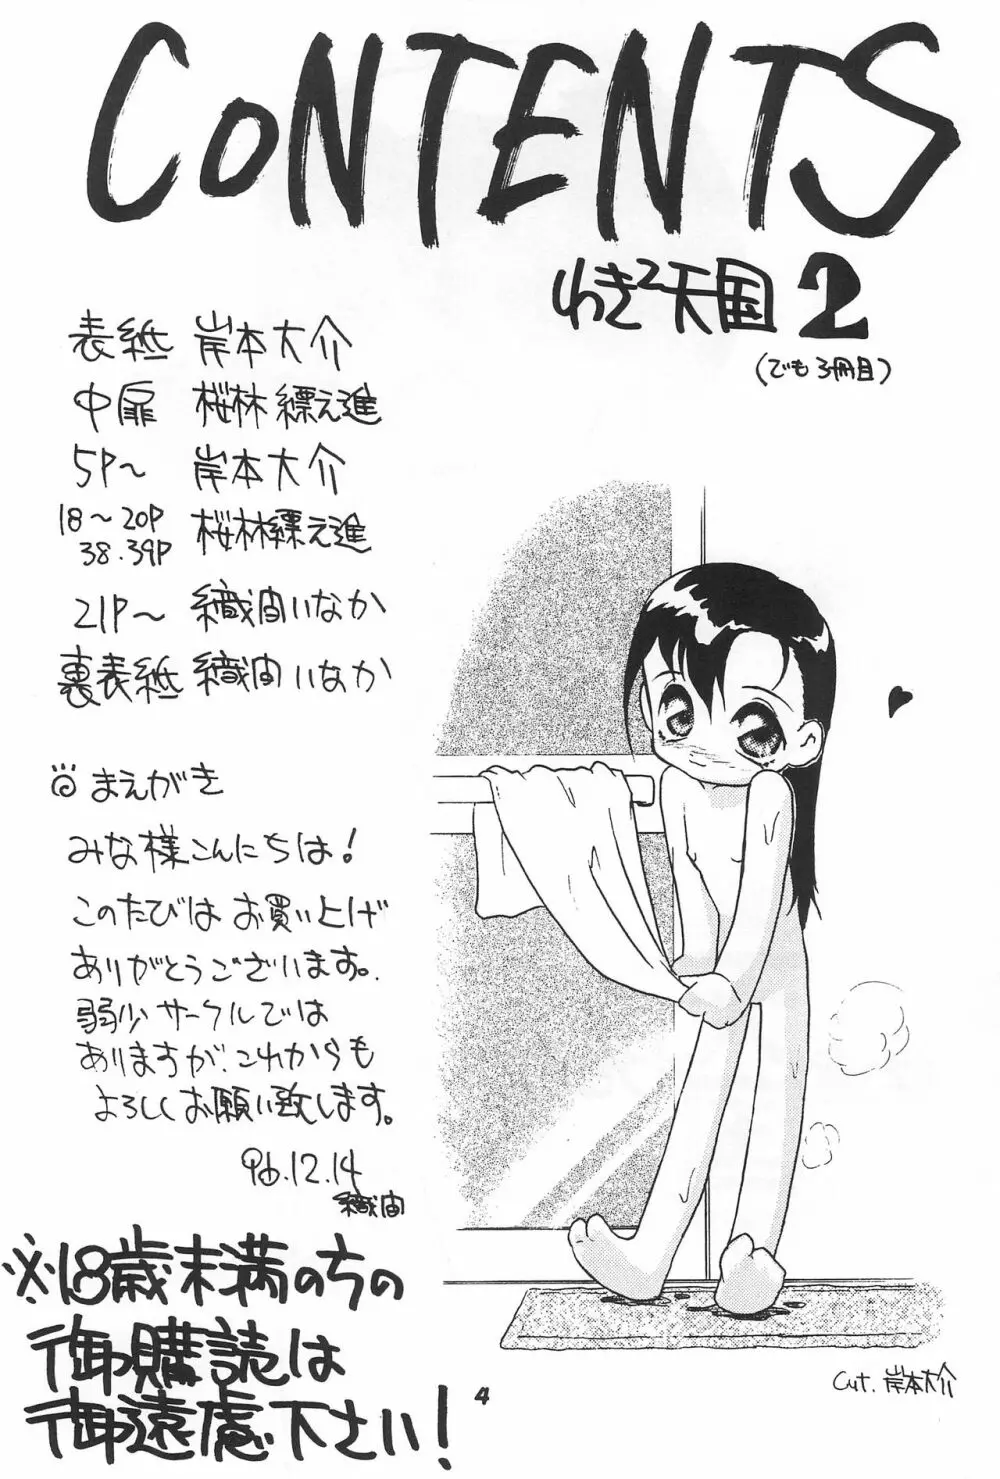 CONTENTS
わき²天国 2
(でも3冊目)
表紙 岸本大介
中扉 桜林縹え進
5P～ 岸本大介
18～20P 桜林縹え進
38.39P
21P～ 織田いなか
裏表紙 織田いなか
まえがき
みな様こんにちは!
このたびはお買い上げ
ありがとうございます。
弱少サークルでは
ありますが、これからも
よろしくお願い致します。
96.12.14
※18歳未満のちの
御購読は
御遠慮下さい!
4
Cut. 岸本大介